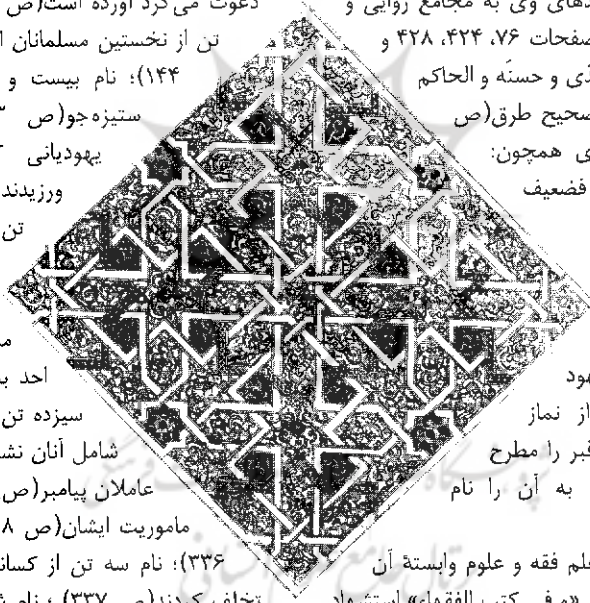 دهای وی به مجامع روایی و
صفحات ۷۶، ۴۲۴، ۴۲۸ و
ذی و حسنّه و الحاکم
صحیح طرق(ص
ی همچون:
فضعیف
هود
از نماز
قبر را مطرح
به آن را نام
علم فقه و علوم وابستهٔ آن
«و فی کتب الفقهاء» استشهاد
دعوت می‌کرد آورده است(ص
تن از نخستین مسلمانان ا
۱۴۴)؛ نام بیست و
ستیزه‌جو(ص
یهودیانی
ورزیدند
تن
احد ب
سیزده تن
شامل آنان نشد
عاملان پیامبر(ص
ماموریت ایشان(ص ۸
۳۳۶)؛ نام سه تن از کسان
تخلف کردند(ص ۳۳۷)؛ نام ش